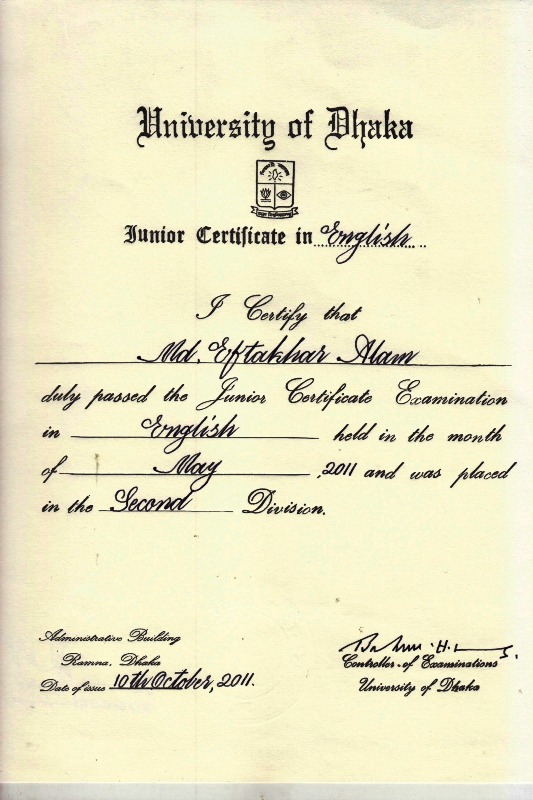 University of Dhaka
Junior Certificate in English
I Certify that
Md. Eftakhar Alam
duly passed the Junior Certificate Examination
in English held in the month
of May ,2011 and was placed
in the Second Division.
Administrative Building
Ramna, Dhaka
Date of issue 10th October, 2011.
Controller of Examinations
University of Dhaka